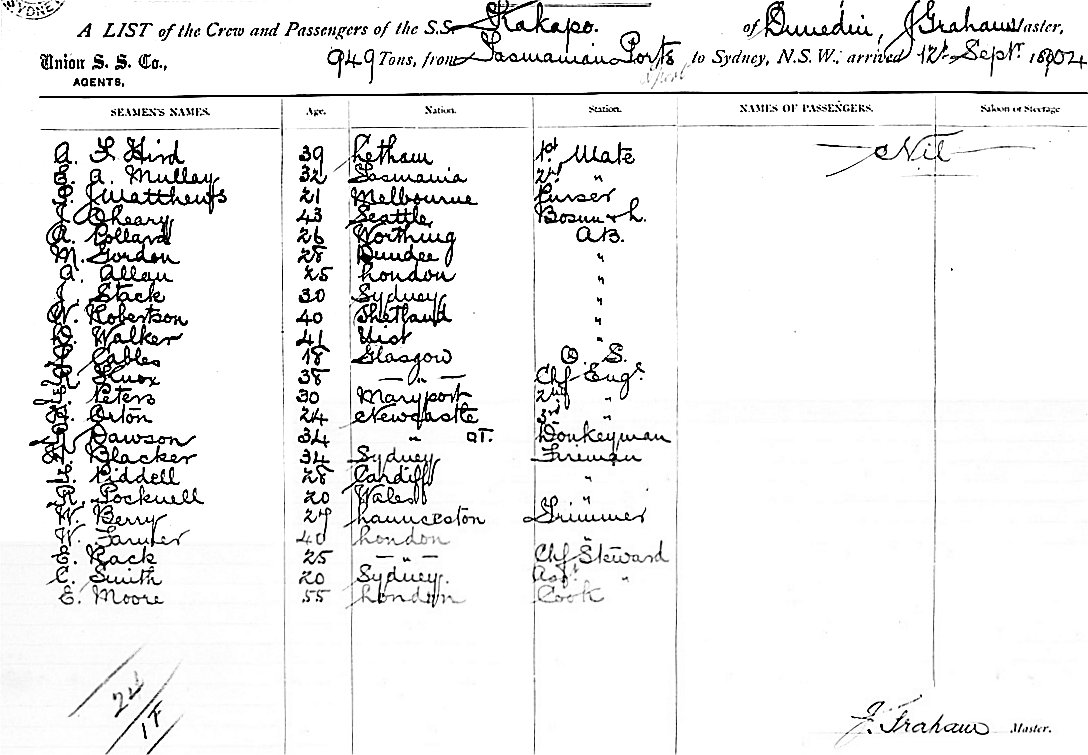 SYDNEY
A LIST of the Crew and Passengers of the S.S. Kakapo. of Dunedin, J Graham Master,
Union S. S. Co., 949 Tons, from Tasmanian Ports to Sydney, N.S.W., arrived 12th Septr. 1904
AGENTS,
SEAMEN'S NAMES. Age. Nation. Station. NAMES OF PASSENGERS. Saloon or Steerage
A. Hird 39 1st Mate Nil
E. A. Mulley 32 Tasmania 2nd "
Matthews 21 Melbourne Purser
J. O'heary 43 Seattle Bosun & L.
A. Pollard 26 Worthing A.B.
M. Gordon 28 Dundee "
A. Allan 25 London "
J. Stack 30 Sydney "
W. Robertson 40 Shetland "
D. Walker 41 Uist "
Cables 18 Glasgow O. S.
Knox 38 — " — Chf Engr.
Peters 30 Maryport 2nd "
Orton 24 Newcastle 3rd "
Dawson 34 " Donkeyman
Blacker 34 Sydney Fireman
Piddell 28 Cardiff "
R. Pocknell 20 Wales "
W. Berry 27 Launceston Trimmer
W. Farmer 40 London "
E. Rack 25 — " — Chf Steward
C. Smith 20 Sydney. Asst. "
E. Moore 55 London Cook
24
J. Graham Master.